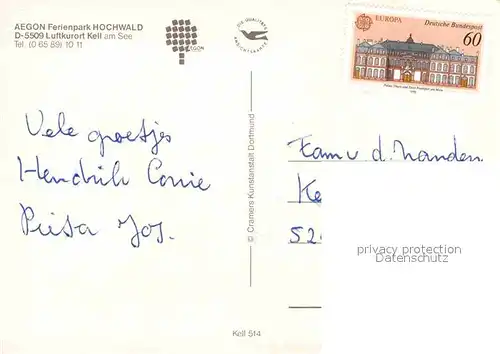 AEGON Ferienpark HOCHWALD
D-5509 Luftkurort Kell am See
Tel. (0 65 89) 10 11
AEGON
DIE QUALITÄTS
ANSICHTSKARTE
EUROPA
Deutsche Bundespost
60
Vele groetjes
Hendrik Corrie
Petra Jos.
© Cramers Kunstanstalt Dortmund
Fam v. d. Kell 514
privacy protection
Datenschutz